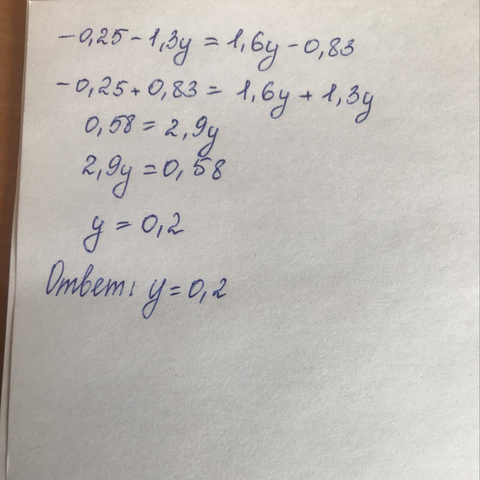 -0,25-1,3y=1,6y-0,83
-0,25+0,83=1,6y+1,3y
0,58=2,9y
2,9y=0,58
y=0,2
Ответ: y=0,2